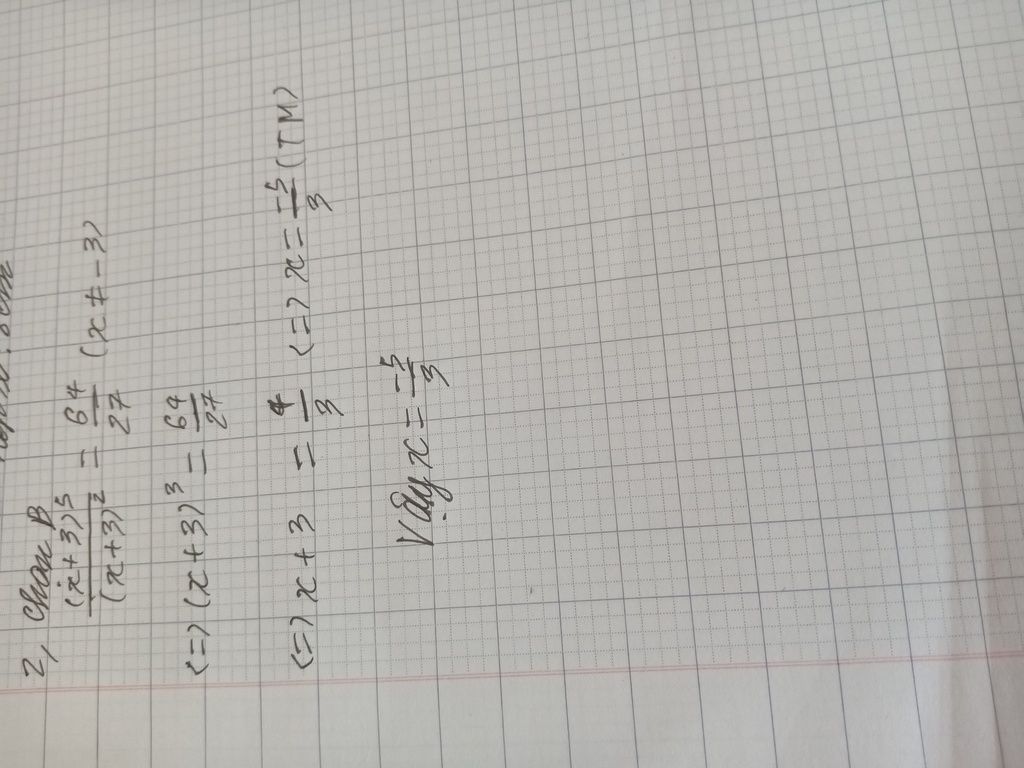 2, Chọn B
(x+3)^5/(x+3)^2 = 64/27 (x ≠ -3)
(=) (x+3)^3 = 64/27
(=) x+3 = 4/3 (=) x = -5/3 (TM)
Vậy x = -5/3